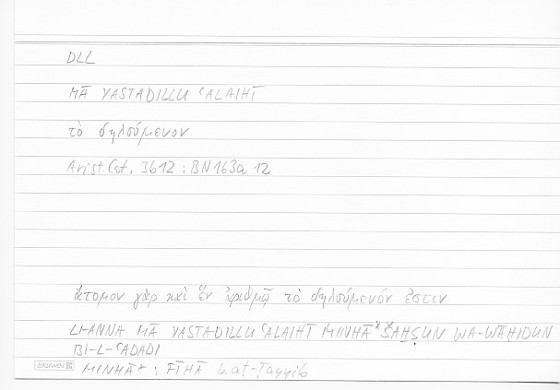 DLL
MĀ YASTADILLU ʿALAIHĪ
τὸ δηλούμενον
Arist. Cat. 3b12 ; BN 163a 12
ἄτομον γὰρ καὶ ἓν ἀριθμῷ τὸ δηλούμενόν ἐστιν
LI-ANNA MĀ YASTADILLU ʿALAIHĪ MINHĀ* ŠAḪṢUN WA-WĀḤIDUN
BI-L-ʿADADI
MINHĀ* : FĪHĀ Ibn at-Ṭayyib